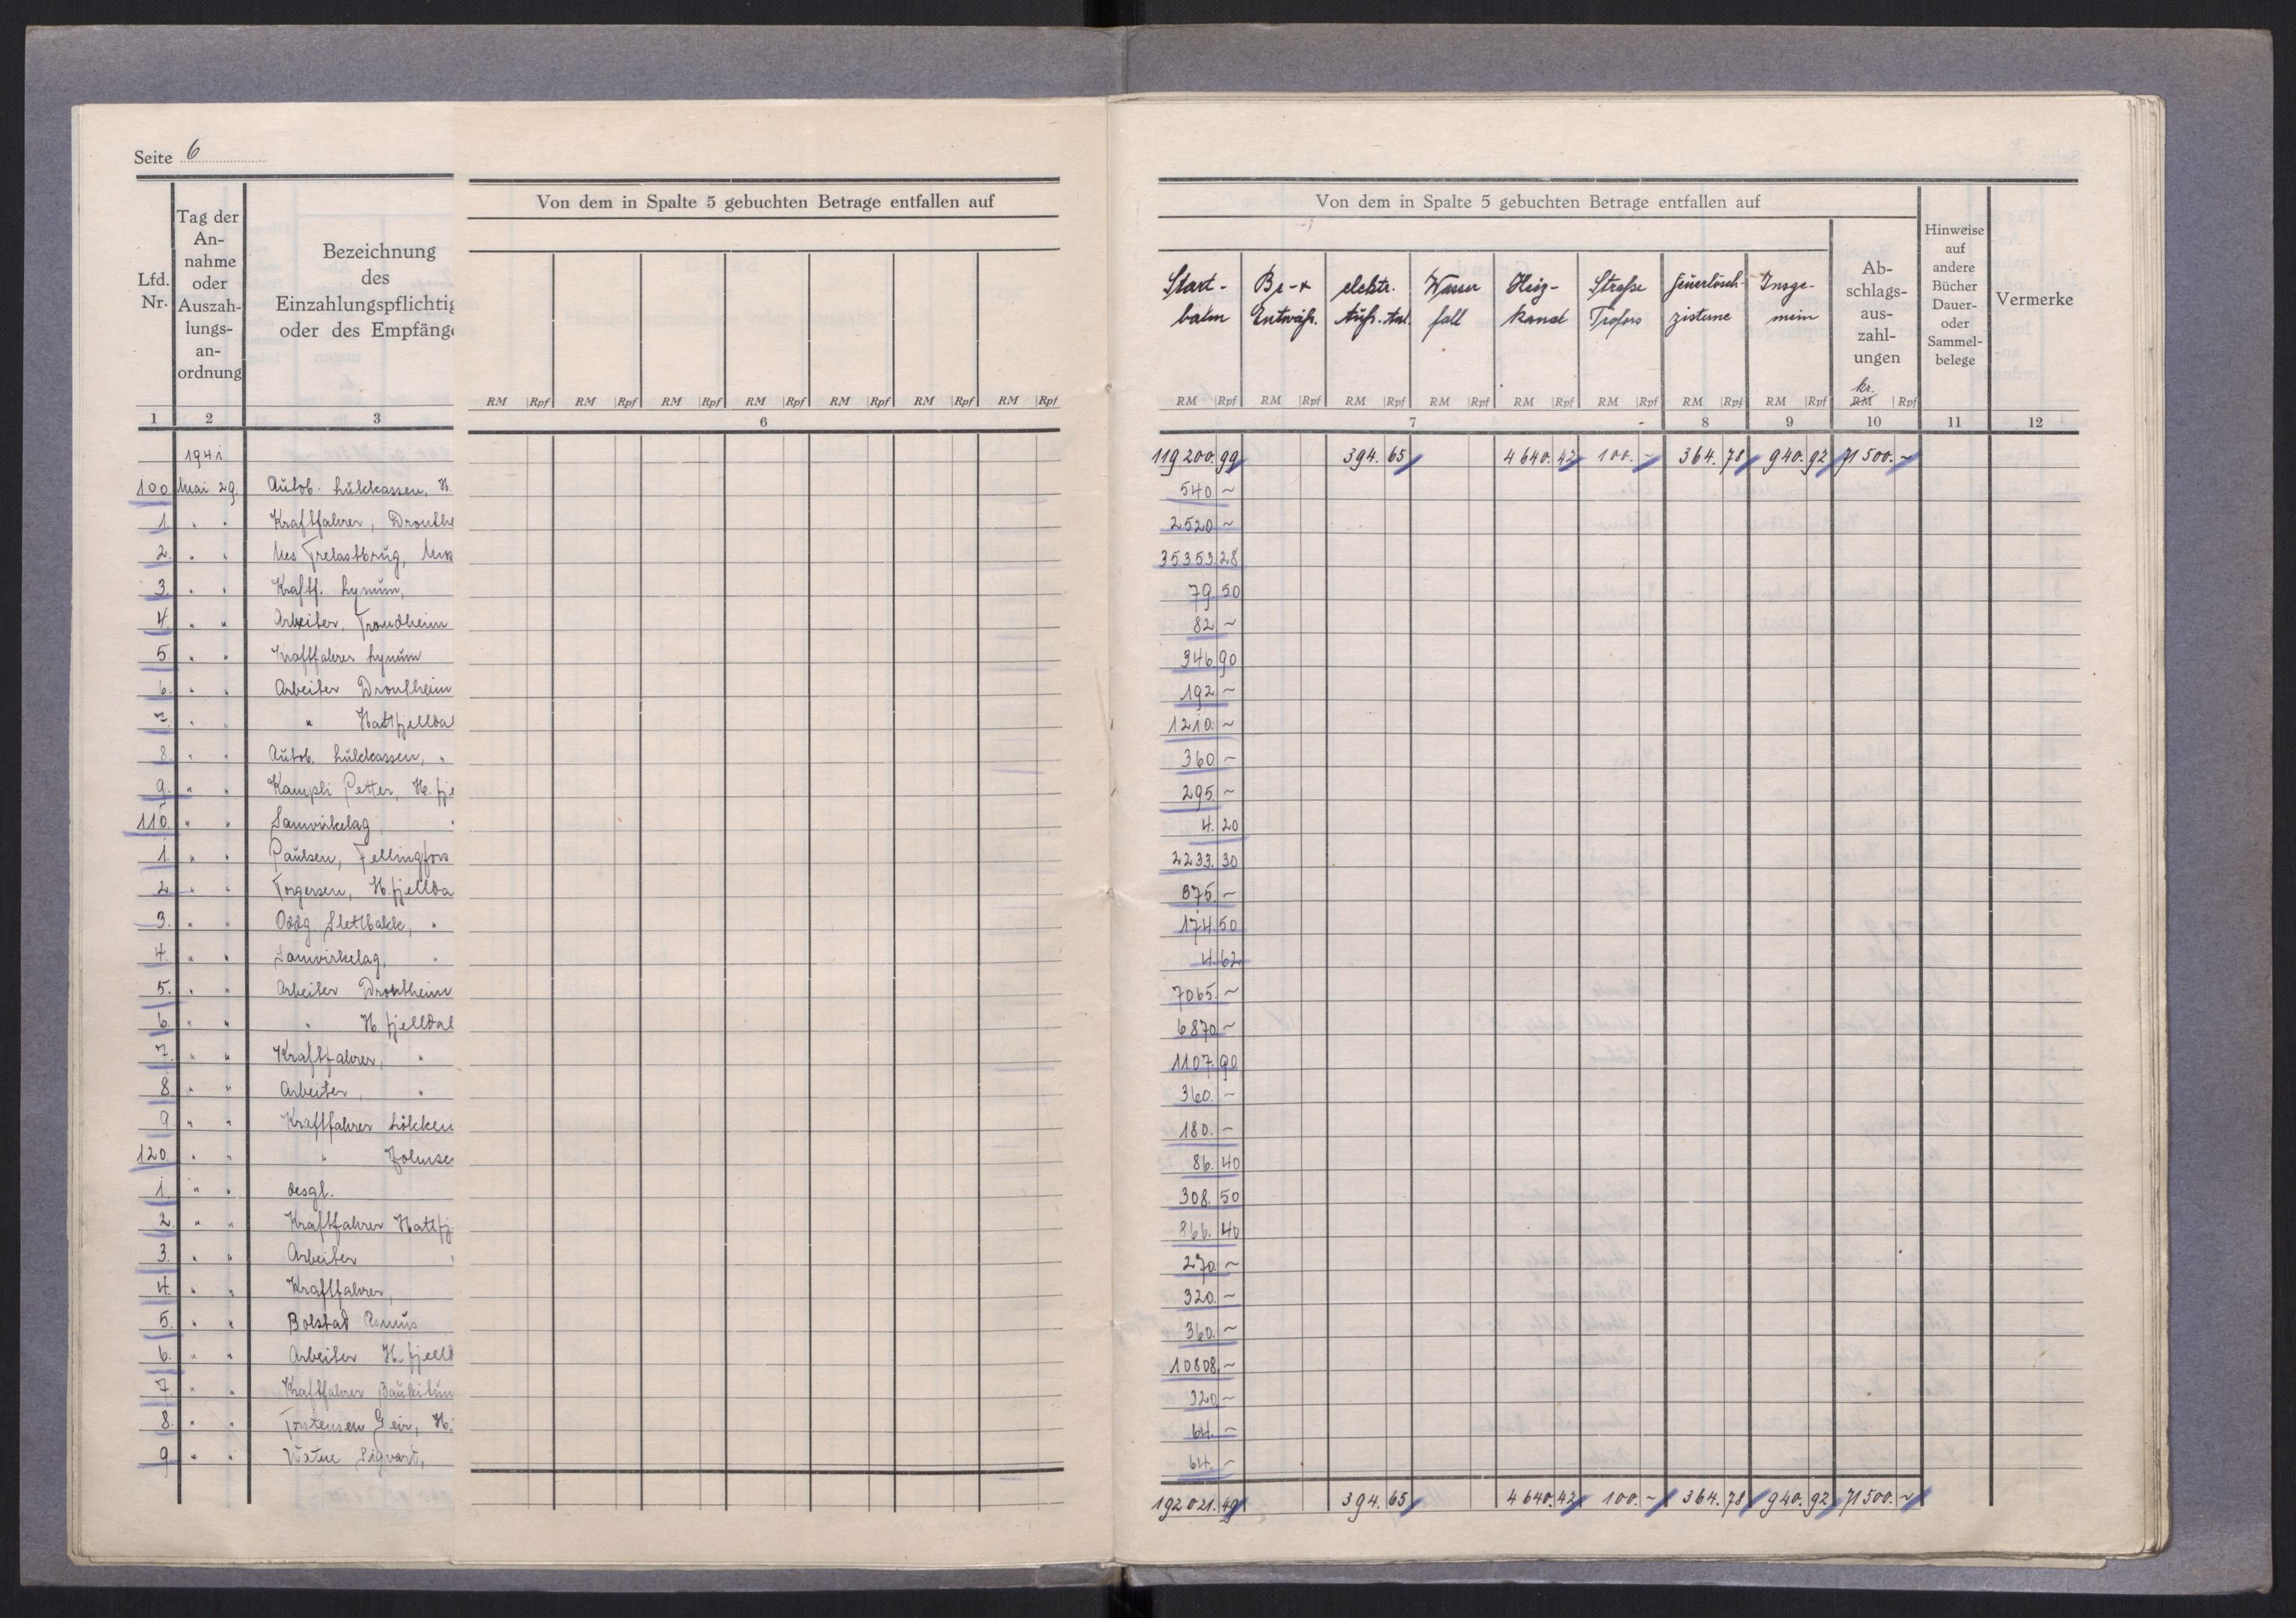 Seite 6
Lfd. Nr.
Tag der An- nahme oder Auszah- lungs- an- ordnung
Bezeichnung des Einzahlungspflichtig oder des Empfänge
Von dem in Spalte 5 gebuchten Betrage entfallen auf
RM Rpf RM Rpf RM Rpf RM Rpf RM Rpf RM Rpf RM Rpf
Von dem in Spalte 5 gebuchten Betrage entfallen auf
Start- bahn
Be- + Entwäss.
elektr. Aufs. Anl.
Wasser fall
Heiz- kanal
Straße Trofors
Feuerlösch- zisterne
Insge- mein
Ab- schlags- aus- zahl- ungen
kr.
Hinweise auf andere Bücher Dauer- oder Sammel- belege
Vermerke
RM Rpf RM Rpf RM Rpf RM Rpf RM Rpf RM Rpf RM Rpf RM Rpf RM Rpf
1 2 3 6 7 8 9 10 11 12
1941 119200.99 394.65 4640.42 100.- 364.78 940.92 71500.-
100 Mai 29. Autob. Lukkassen, H. 540.-
1. " " Kraftfahrer, Dronthe 2520.-
2. " " Mes Trelastbrug, Mos 35353.28
3. " " Kraftf. Lynum, 79.50
4. " " Arbeiter, Trondheim 82.-
5. " " Kraftfahrer Lynum 946.90
6. " " Arbeiter Drontheim 192.-
7. " " " Hattfjelldal 1210.-
8. " " Autob. Lukkassen, " 360.-
9. " " Kampli Petter, H. fje 295.-
110. " " Samvirkelag, " 4.20
1. " " Paulsen, Fellingfors 2233.30
2. " " Torgersen, H. fjellda 375.-
3. " " Oddg. Sletbakk, " 174.50
4. " " Samvirkelag, " 4.62
5. " " Arbeiter Drontheim 7065.-
6. " " " H. fjelldal 6870.-
7. " " Kraftfahrer, " 1107.90
8. " " Arbeiter, " 360.-
9. " " Kraftfahrer Lökken 180.-
120. " " " Johnse 86.40
1. " " desgl. 308.50
2. " " Kraftfahrer Hattfj 866.40
3. " " Arbeiter " 270.-
4. " " Kraftfahrer, 320.-
5. " " Bolstad Asmus 360.-
6. " " Arbeiter H. fjelld 10808.-
7. " " Kraftfahrer Bauleitun 320.-
8. " " Torstensen Geir, H. 64.-
9 " " Sigvart, 64.-
192021.49 394.65 4640.42 100.- 364.78 940.92 71500.-